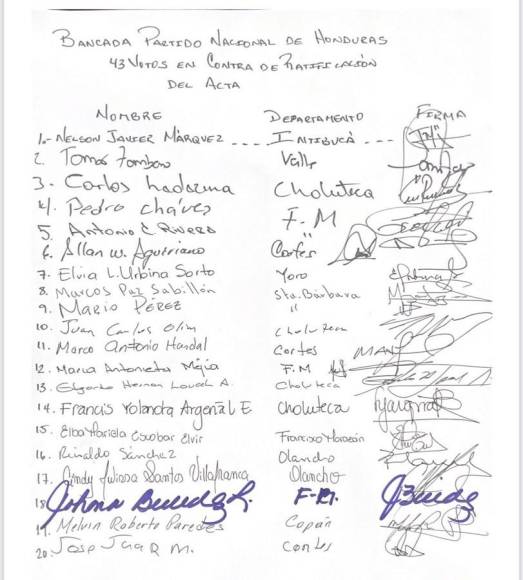 BANCADA PARTIDO NACIONAL DE HONDURAS
43 VOTOS EN CONTRA DE RATIFICACIÓN
DEL ACTA
NOMBRE DEPARTAMENTO FIRMA
1.- NELSON JAVIER MÁRQUEZ ---- INTIBUCÁ ---
2. Tomas Valle
3. Carlos Ledezma Choluteca
4. Pedro Chávez F.M
5. Antonio C. Rivera "
6. Allan W. Cortes
7. Elvia L. Urbina Sorto Yoro
8. Marcos Paz Sabillón Sta. Bárbara
9. MARIO PÉREZ "
10. Juan Carlos Choluteca
11. Marco Antonio Handal Cortes
12. Maria Antonieta Mejia F.M
13. Hernan A. Choluteca
14. Francis Yolanda Argeñal E. Choluteca
15. Elba Mariela Escobar Elvir Francisco Morazán
16. Reinaldo Sánchez Olancho
17. Cindy Juliana Santos Villafranca Olancho
18 Johana F.M.
19. Melvin Roberto Paredes Copán
20. M. Cortes